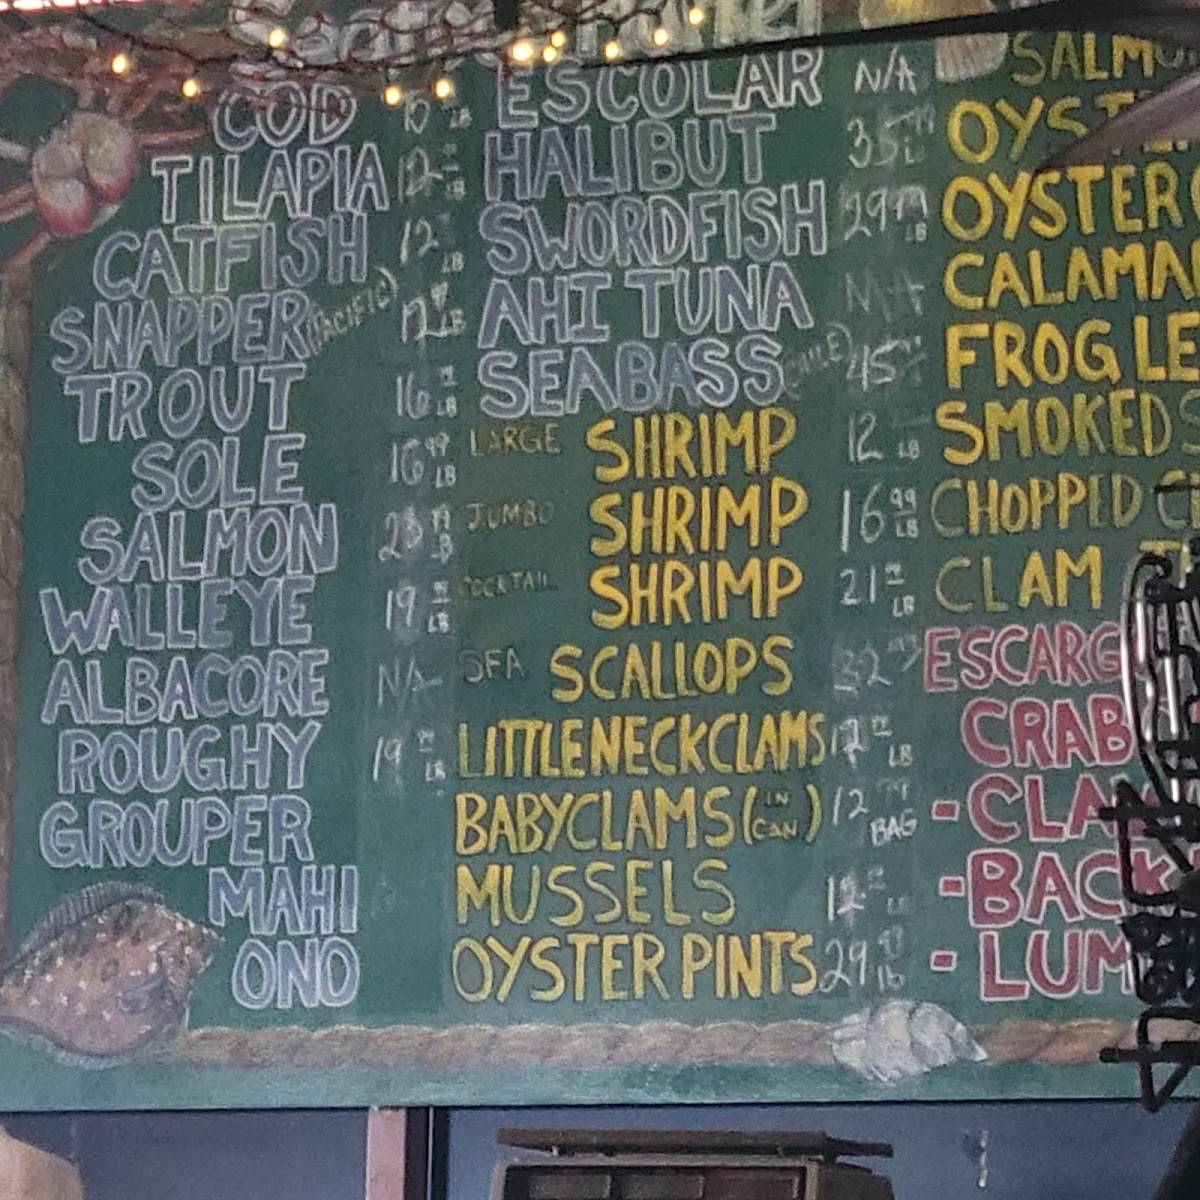 COD
TILAPIA 12 LB
CATFISH 12 LB
SNAPPER (PACIFIC) 12 LB
TROUT 16 LB
SOLE 16 99 LB
SALMON 23 99 LB
WALLEYE 19 LB
ALBACORE N/A
ROUGHY 19 LB
GROUPER
MAHI
ONO
ESCOLAR N/A
HALIBUT 35
SWORDFISH 29 99 LB
AHI TUNA
SEABASS 45
LARGE SHRIMP 12 LB
JUMBO SHRIMP 16 99 LB
COCKTAIL SHRIMP 21 LB
SEA SCALLOPS 32
LITTLENECK CLAMS 12 LB
BABY CLAMS (IN CAN) 12 99 BAG
MUSSELS
OYSTER PINTS 29
SALMO
OYST
OYSTER
CALAMA
FROG LE
SMOKED S
CHOPPED C
CLAM
ESCARG
CRAB
-CLA
-BACK
-LUM